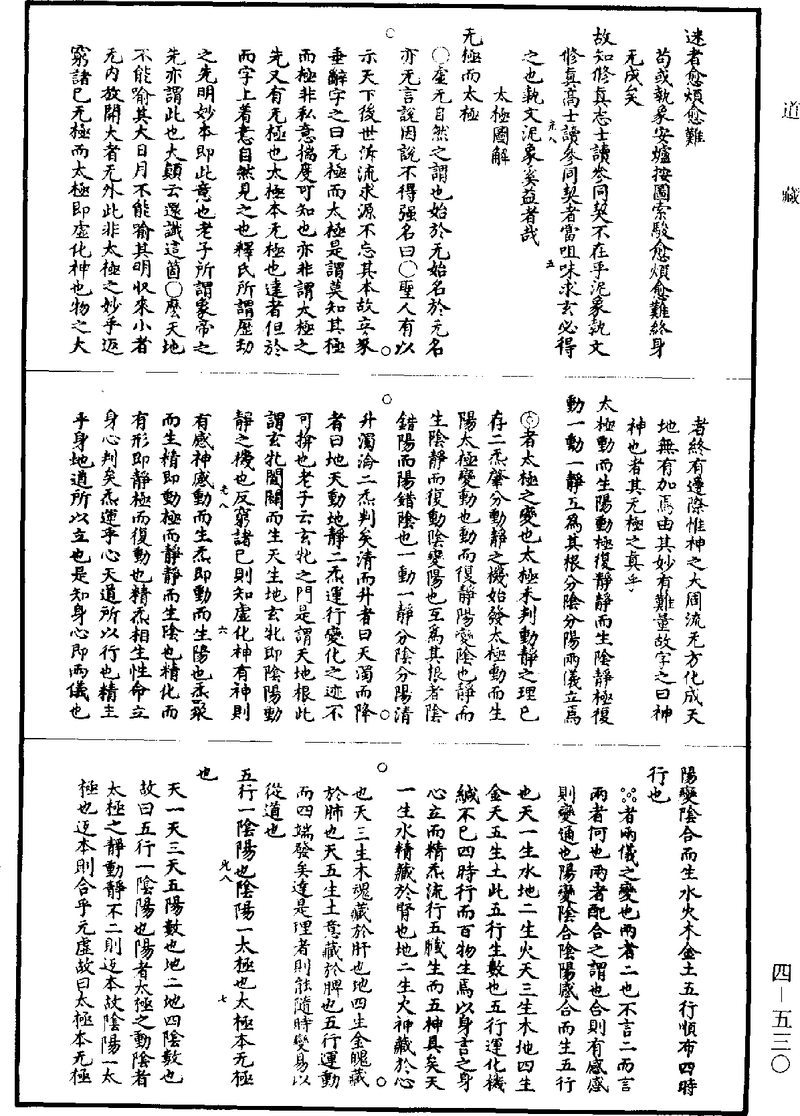 道藏
迷者愈煩愈難
苟或執象安爐按圖索駿愈煩愈難終身
无成矣
故知修真志士讀參同契不在乎泥象執文
修真高士讀參同契者當咀味求玄必得
光八
五
之也執文泥象奚益者哉
太極圖解
无極而太極
○虛无自然之謂也始於无始名於无名
亦无言說因說不得强名曰○聖人有以
示天下後世泝流求源不忘其本故立象
垂辭字之曰无極而太極是謂莫知其極
而極非私意揣度可知也亦非謂太極之
先又有无極也太極本无極也達者但於
而字上着意自然見之也釋氏所謂歷劫
之先明妙本即此意也老子所謂象帝之
先亦謂此也大顛云還識這箇○麽天地
不能喻其大日月不能喻其明収來小者
无內放開大者无外此非太極之妙乎返
窮諸己无極而太極即虛化神也物之大
者終有邊際惟神之大周流无方化成天
地無有加焉由其妙有難量故字之曰神
神也者其无極之真乎
太極動而生陽動極復靜靜而生陰靜極復
動一動一靜互爲其根分陰分陽兩儀立焉
者太極之變也太極未判動靜之理已
存二炁肇分動靜之機始發太極動而生
陽太極變動也動而復靜陽變陰也靜而
生陰靜而復動陰變陽也互爲其根者陰
錯陽而陽錯陰也一動一靜分陰分陽清
升濁淪二炁判矣清而升者曰天濁而降
者曰地天動地靜二炁運行變化之迹不
可揜也老子云玄牝之門是謂天地根此
謂玄牝闔闢而生天生地玄牝即陰陽動
靜之機也反窮諸己則知虛化神有神則
光八
六
有感神感動而生炁即動而生陽也炁聚
而生精即動極而靜靜而生陰也精化而
有形即靜極而復動也精炁相生性命立
身心判矣炁運乎心天道所以行也精主
乎身地道所以立也是知身心即兩儀也
陽變陰合而生水火木金土五行順布四時
行也
者兩儀之變也兩者二也不言二而言
兩者何也兩者配合之謂也合則有感感
則變通也陽變陰合陰陽感合而生五行
也天一生水地二生火天三生木地四生
金天五生土此五行生數也五行運化機
緘不已四時行而百物生焉以身言之身
心立而精炁流行五臟生而五神具矣天
一生水精藏於腎也地二生火神藏於心
也天三生木魂藏於肝也地四生金魄藏
於肺也天五生土意藏於脾也五行運動
而四端發矣達是理者則能隨時變易以
從道也
五行一陰陽也陰陽一太極也太極本无極
光八
七
也
天一天三天五陽數也地二地四陰數也
故曰五行一陰陽也陽者太極之動陰者
太極之靜動靜不二則返本故陰陽一太
極也返本則合乎元虛故曰太極本无極
四-五三〇